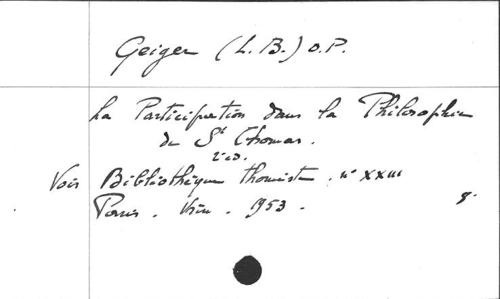 Geiger (L. B.) O.P.
La Participation dans la Philosophie
de St Thomas.
2 ed.
Voir Bibliothèque thomiste. n° XXIII
Paris. Vrin. 1953.